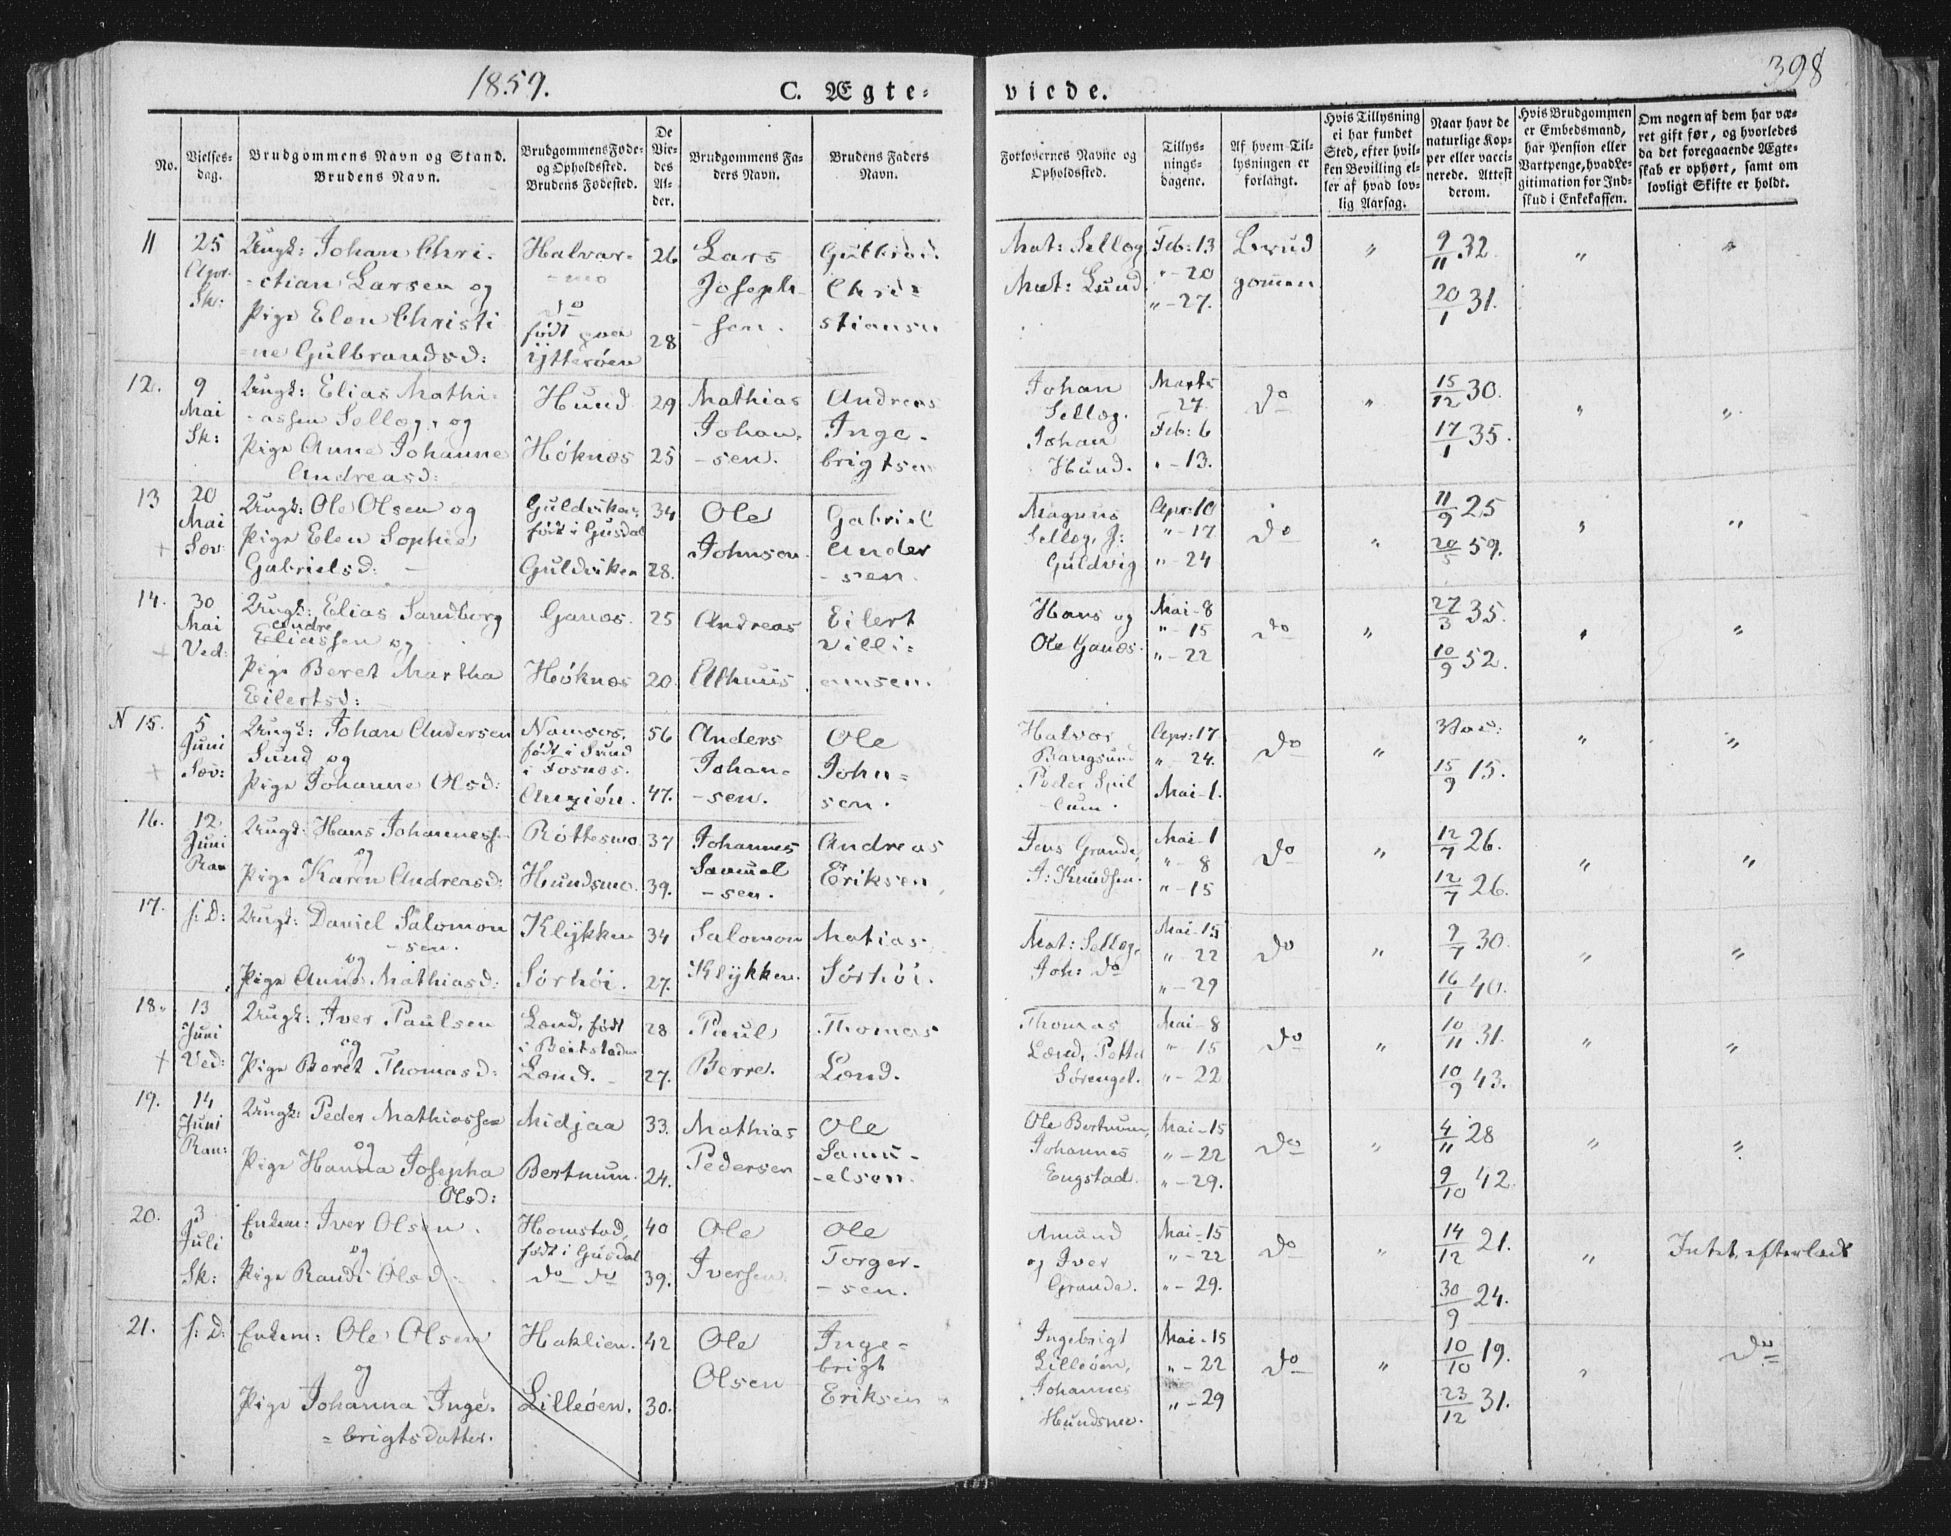 1859.
C. Ægte-
viede.
398
No.
Vielses-
dag.
Brudgommens Navn og Stand.
Brudens Navn.
Brudgommens Føde-
og Opholdssted.
Brudens Fødested.
De
Vie-
des
Al-
der.
Brudgommens Fa-
ders Navn.
Brudens Faders
Navn.
Forlovernes Navne og
Opholdssted.
Tillys-
nings-
dagene.
Af hvem Til-
lysningen er
forlangt.
Hvis Tillysning
ei har fundet
Sted, efter hvil-
ken Bevilling el-
ler af hvad lov-
lig Aarsag.
Naar havt de
naturlige Kop-
per eller vacci-
nerede. Attest
derom.
Hvis Brudgommen
er Embedsmand,
har Pension eller
Vartpenge, hvad Le-
gitimation for Ind-
skud i Enkekassen.
Om nogen af dem har væ-
ret gift før, og hvorledes
da det foregaaende Ægte-
skab er ophørt, samt om
lovligt Skifte er holdt.
11
25
Apr.
Sk:
Ungk: Johan Chri-
-stian Larsen og
Pige Elen Christi
-ne Gulbrandsd:
Halvar-
-mo
do
født paa
Ytterøen
26
28
Lars
Joseph-
-sen.
Gulbrand
Chri-
stiansen
Mat: Sellæg
Mat: Lund
Feb: 13
" - 20
" - 27.
Brud
gommen
"
9/11 32.
20/1 31.
"
"
12.
9
Mai
Sk:
Ungk: Elias Mathi-
-assen Sellæg, og
Pige Anne Johanne
Andreasd:
Hund
Høknæs
29
25
Mathias
Johan-
-sen.
Andreas
Inge-
brigtsen
Johan
Sellæg.
Johan
Hund.
Marts
27.
Feb: 6
" - 13.
do
"
15/12 30.
17/1 35.
"
"
13
20
Mai
Sæv:
+
Ungk: Ole Olsen og
Pige Elen Sophie
Gabrielsd: -
Guldviken
født i Gusdal
Guldviken
34
28.
Ole
Johnsen
Gabriel
Ander
-sen.
Magnus
Sellæg, J:
Guldvig
Apr: 10
" - 17
" - 24
do
"
11/9 25
20/5 59.
"
"
14.
30
Mai
Ved:
+
Ungk: Elias Sandborg
Andre
Eliassen og
Pige Beret Martha
Eilertsd:
Ganæs.
Høknæs
25
20
Andreas
Althuus
Eilert
Villi-
amsen.
Hans og
Ole Ganæs.
Mai - 8
" - 15
" - 22
do
"
27/3 35.
10/9 52.
"
"
N 15.
5
Juni
Sæv:
+
Ungk: Johan Andersen
Sund og
Pige Johanne Olsd:
Namsos.
født i Sund
i Fosnæs.
56
47.
Anders
Johan-
-sen.
Ole
John-
sen.
Halvor
Bangsund
Peder Spil
-lum.
Apr: 17
" - 24.
Mai - 1.
do
"
15/9 15.
"
"
16.
12
Juni
Ran
Ungk: Hans Johanness.
og
Pige Karen Andreasd:
Røttesmo
Hundsmo.
37
39.
Johannes
Samuel
-sen.
Andreas
Eriksen
Jens Grande,
A: Knudsen.
Mai - 1
" - 8
" - 15
do
"
12/7 26.
12/7 26.
"
"
17.
s: D:
Ungk: Daniel Salomon
-sen.
og
Pige Anne Mathiasd:
Klykken
Sørhøi.
34
27.
Salomon
Klykken.
Matias
Sørhøi.
Mat: Sellæg,
Joh: do
Mai - 15
" - 22
" - 29
do
"
9/7 30.
16/1 40.
"
"
18.
13
Juni
Ved:
+
Ungk: Iver Paulsen
og
Pige Beret Thomasd:
Lænd, født
i Beitstaden
Lænd. -
28
27.
Paul
Berre.
Thomas
Lænd.
Thomas
Lænd, Petter
Sørenget.
Mai - 8
" - 15
" - 22
do
"
10/11 31.
10/9 43.
"
"
19.
14
Juni
Ran:
Ungk: Peder Mathiassen
og
Pige Hanna Josepha
Olsd:
Midjaa
Bertnum.
33.
24.
Mathias
Pedersen
Ole
Samu-
-elsen.
Ole Bertnum,
Johannes
Engstad.
Mai - 15
" - 22
" - 29.
do
"
4/11 28
9/10 42.
"
"
20.
3
Juli
Sk:
Enkem: Iver Olsen.
og
Pige Randi Olsd
Homstad,
født i Gusdal
do do
40
39.
Ole
Iversen
Ole
Torger-
-sen.
Amund
og Iver
Grande.
Mai - 15
" - 22
" - 29.
do
"
14/12 21.
30/9 24.
"
Intet efterladt
21.
s: D:
Enkem: Ole Olsen
og
Pige Johanna Inge-
-brigtsdatter.
Haklien.
Lilleøen.
42
30.
Ole
Olsen
Inge-
brigt
Eriksen
Ingebrigt
Lilleøen,
Johannes
Hundsmo.
Mai - 15
" - 22
" - 29
do
"
10/10 19.
23/12 31.
"
do